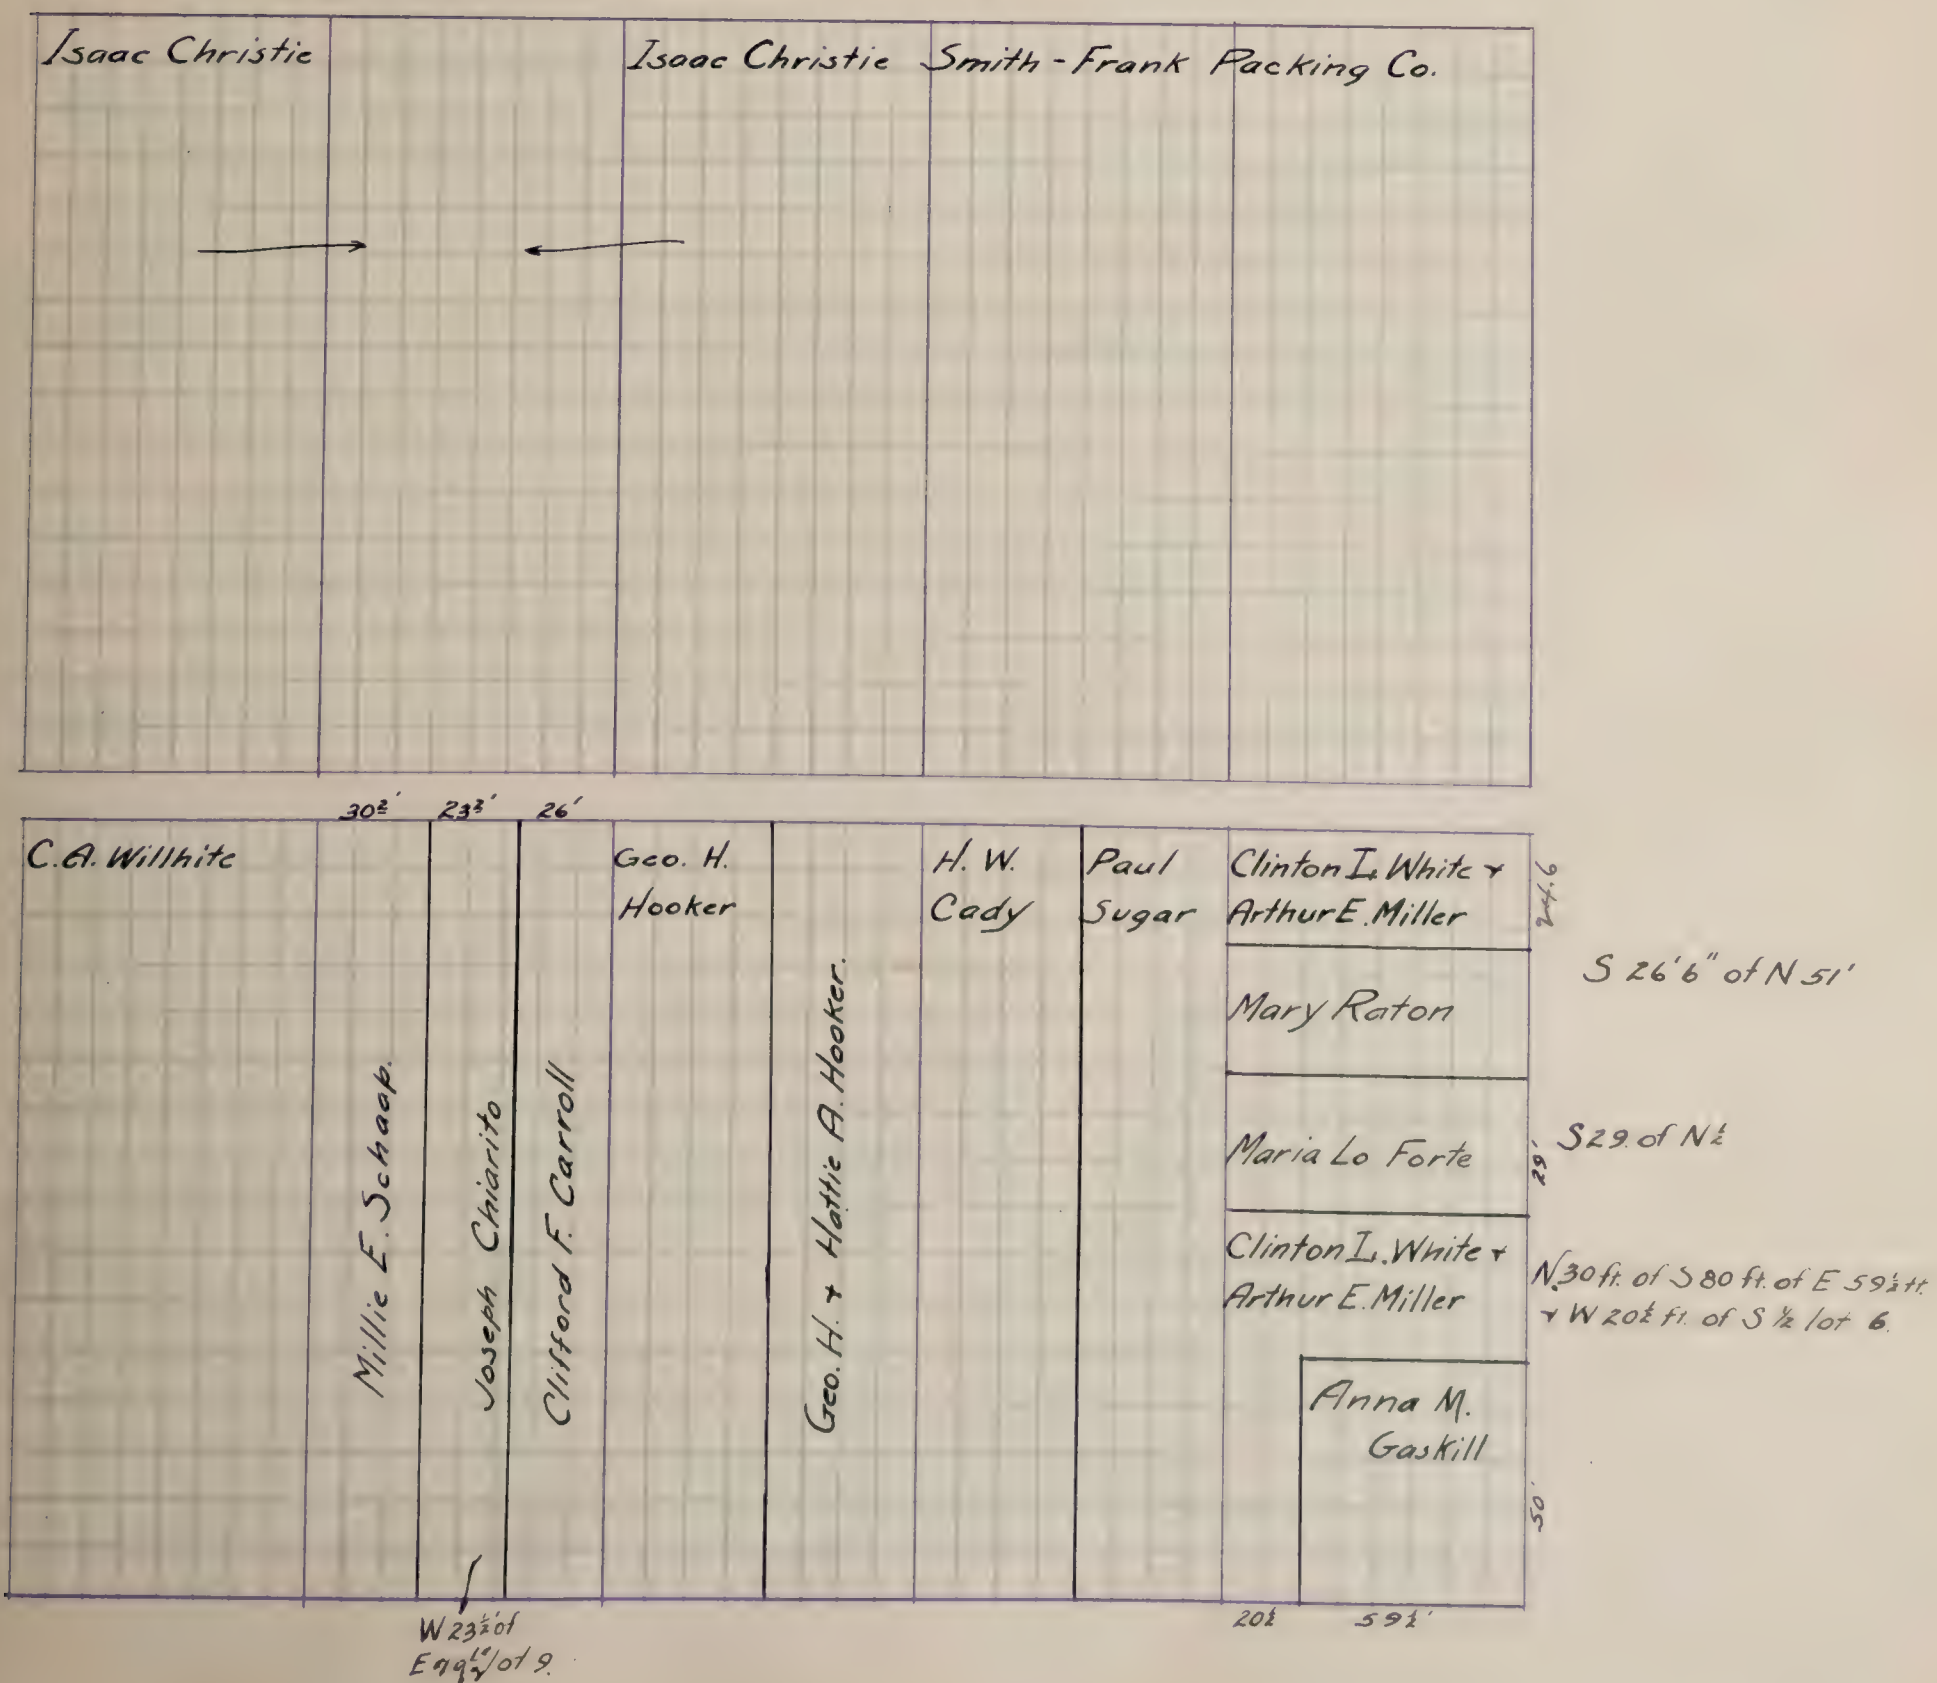 Isaac Christie
Isaac Christie
Smith-Frank Packing Co.
30½'
23½'
26'
C.A. Willhite
Millie E. Schaap.
Joseph Chiarito
Clifford F. Carroll
Geo. H.
Hooker
Geo. H. + Hattie A. Hooker.
H. W.
Cady
Paul
Sugar
Clinton L. White +
Arthur E. Miller
24.6
Mary Raton
S 26'6" of N 51'
Maria Lo Forte
29'
S 29. of N ½
Clinton L. White +
Arthur E. Miller
N.30 ft. of S 80 ft. of E 59½ ft.
+ W 20½ ft. of S ½ lot 6.
Anna M.
Gaskill
50'
20½
59½'
W 23½' of
lot 9.